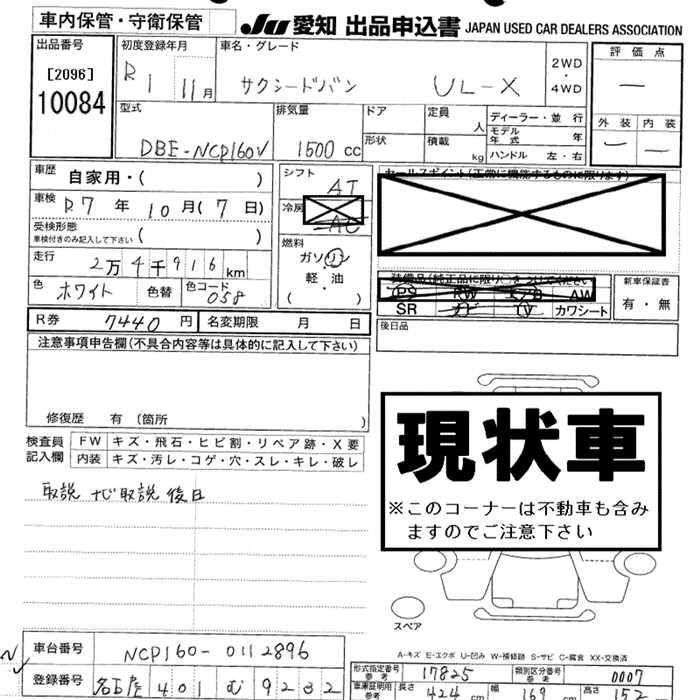 車内保管・守衛保管
JU 愛知 出品申込書 JAPAN USED CAR DEALERS ASSOCIATION
出品番号
[2096]
10084
初度登録年月
R 1 11月
車名・グレード
サクシードバン UL-X
2WD
・
4WD
評価点
—
外装 内装
— —
型式
DBE-NCP160V
排気量
1500 cc
ドア
定員
人
形状
積載
kg
ディーラー・並行
モデル年式 年
ハンドル 左・右
車歴
自家用・( )
車検
R7 年 10月(7日)
受検形態
車検付きのみ記入して下さい ( )
走行
2万4千916km
色 ホワイト 色替 色コード 058
シフト
AT
冷房
AC
燃料
ガソリン
・
軽・油
( )
セールスポイント(正常に機能するものに限ります)
装備品(純正品に限り○をつけてください
PS PW エアB AW
SR ナビ TV カワシート
新車保証書
有・無
後日品
R券 7440円 名変期限 月 日
注意事項申告欄(不具合内容等は具体的に記入して下さい)
修復歴 有 (箇所 )
検査員記入欄
FW キズ・飛石・ヒビ割・リペア跡・X要
内装 キズ・汚レ・コゲ・穴・スレ・キレ・破レ
取説 ナビ取説 後日
現状車
※このコーナーは不動車も含み
ますのでご注意下さい
スペア
A-キズ E-エクボ U-凹み W-補修跡 S-サビ C-腐食 XX-交換済
車台番号 NCP160-0112896
登録番号 名古屋 401 む 9232
形式指定番号 参考 17825
類別区分番号 参考 0007
車庫証明用 参考
長さ 424 cm 幅 169 cm 高さ 152 cm